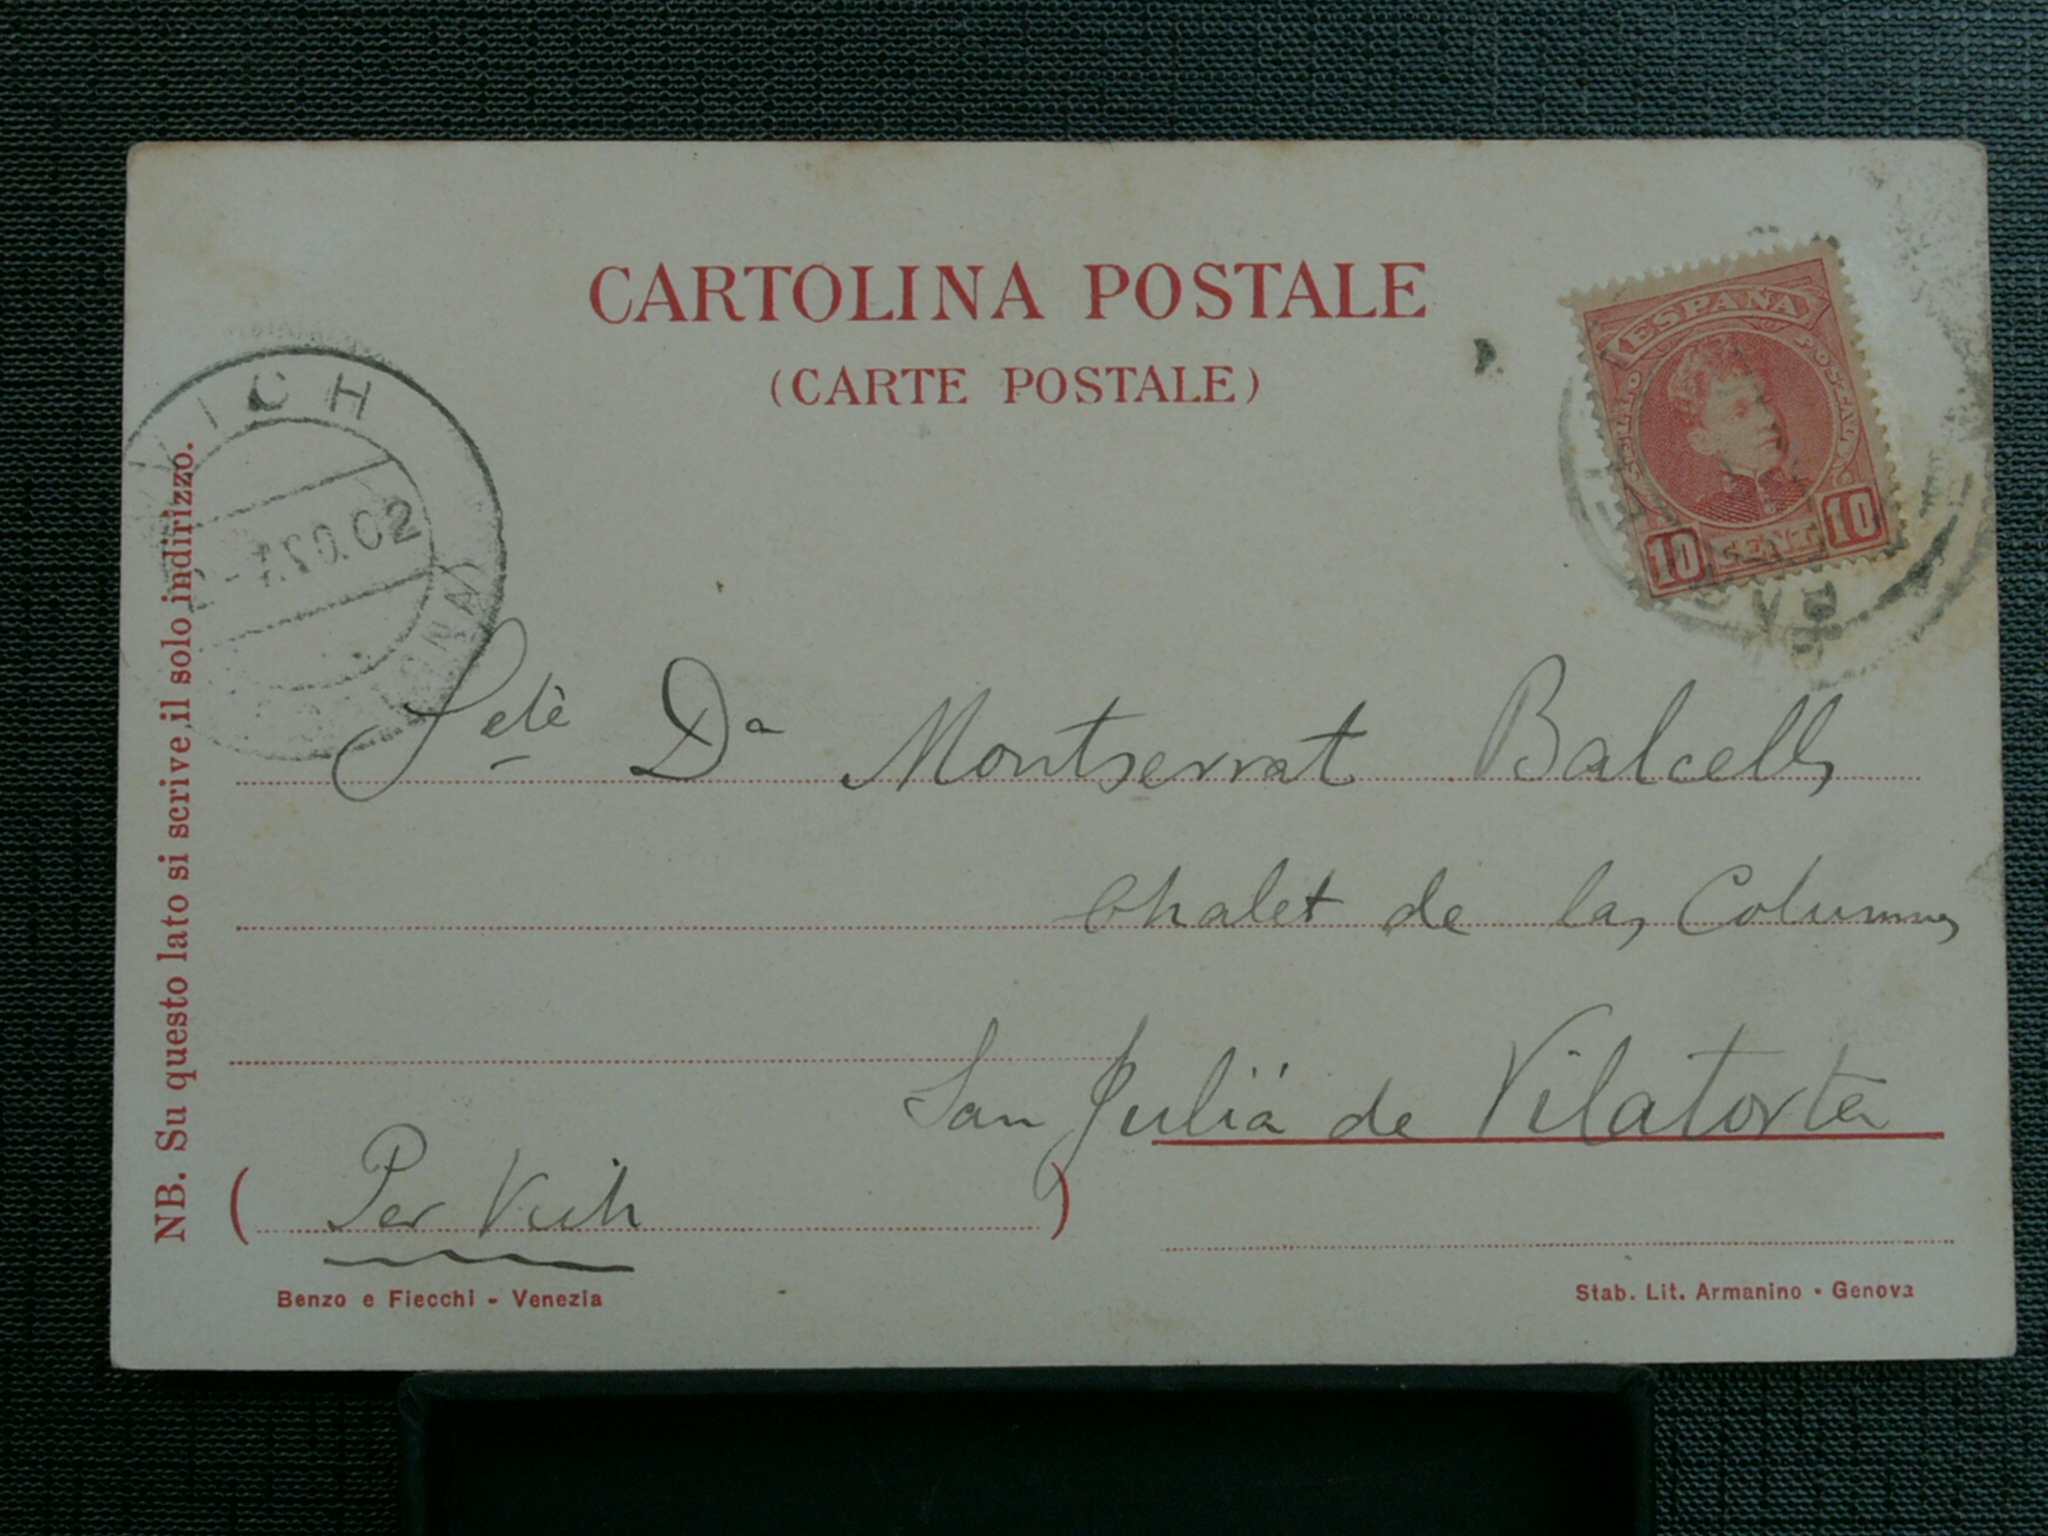 CARTOLINA POSTALE
(CARTE POSTALE)
ESPAÑA
SELLO POSTAL
10 CENT. 10
VICH
02
NB. Su questo lato si scrive il solo indirizzo.
Dª Montserrat Balcells
Chalet de las Columnas
San Juliá de Vilatorta
(Per Vich)
Benzo e Fiecchi - Venezia
Stab. Lit. Armanino - Genova